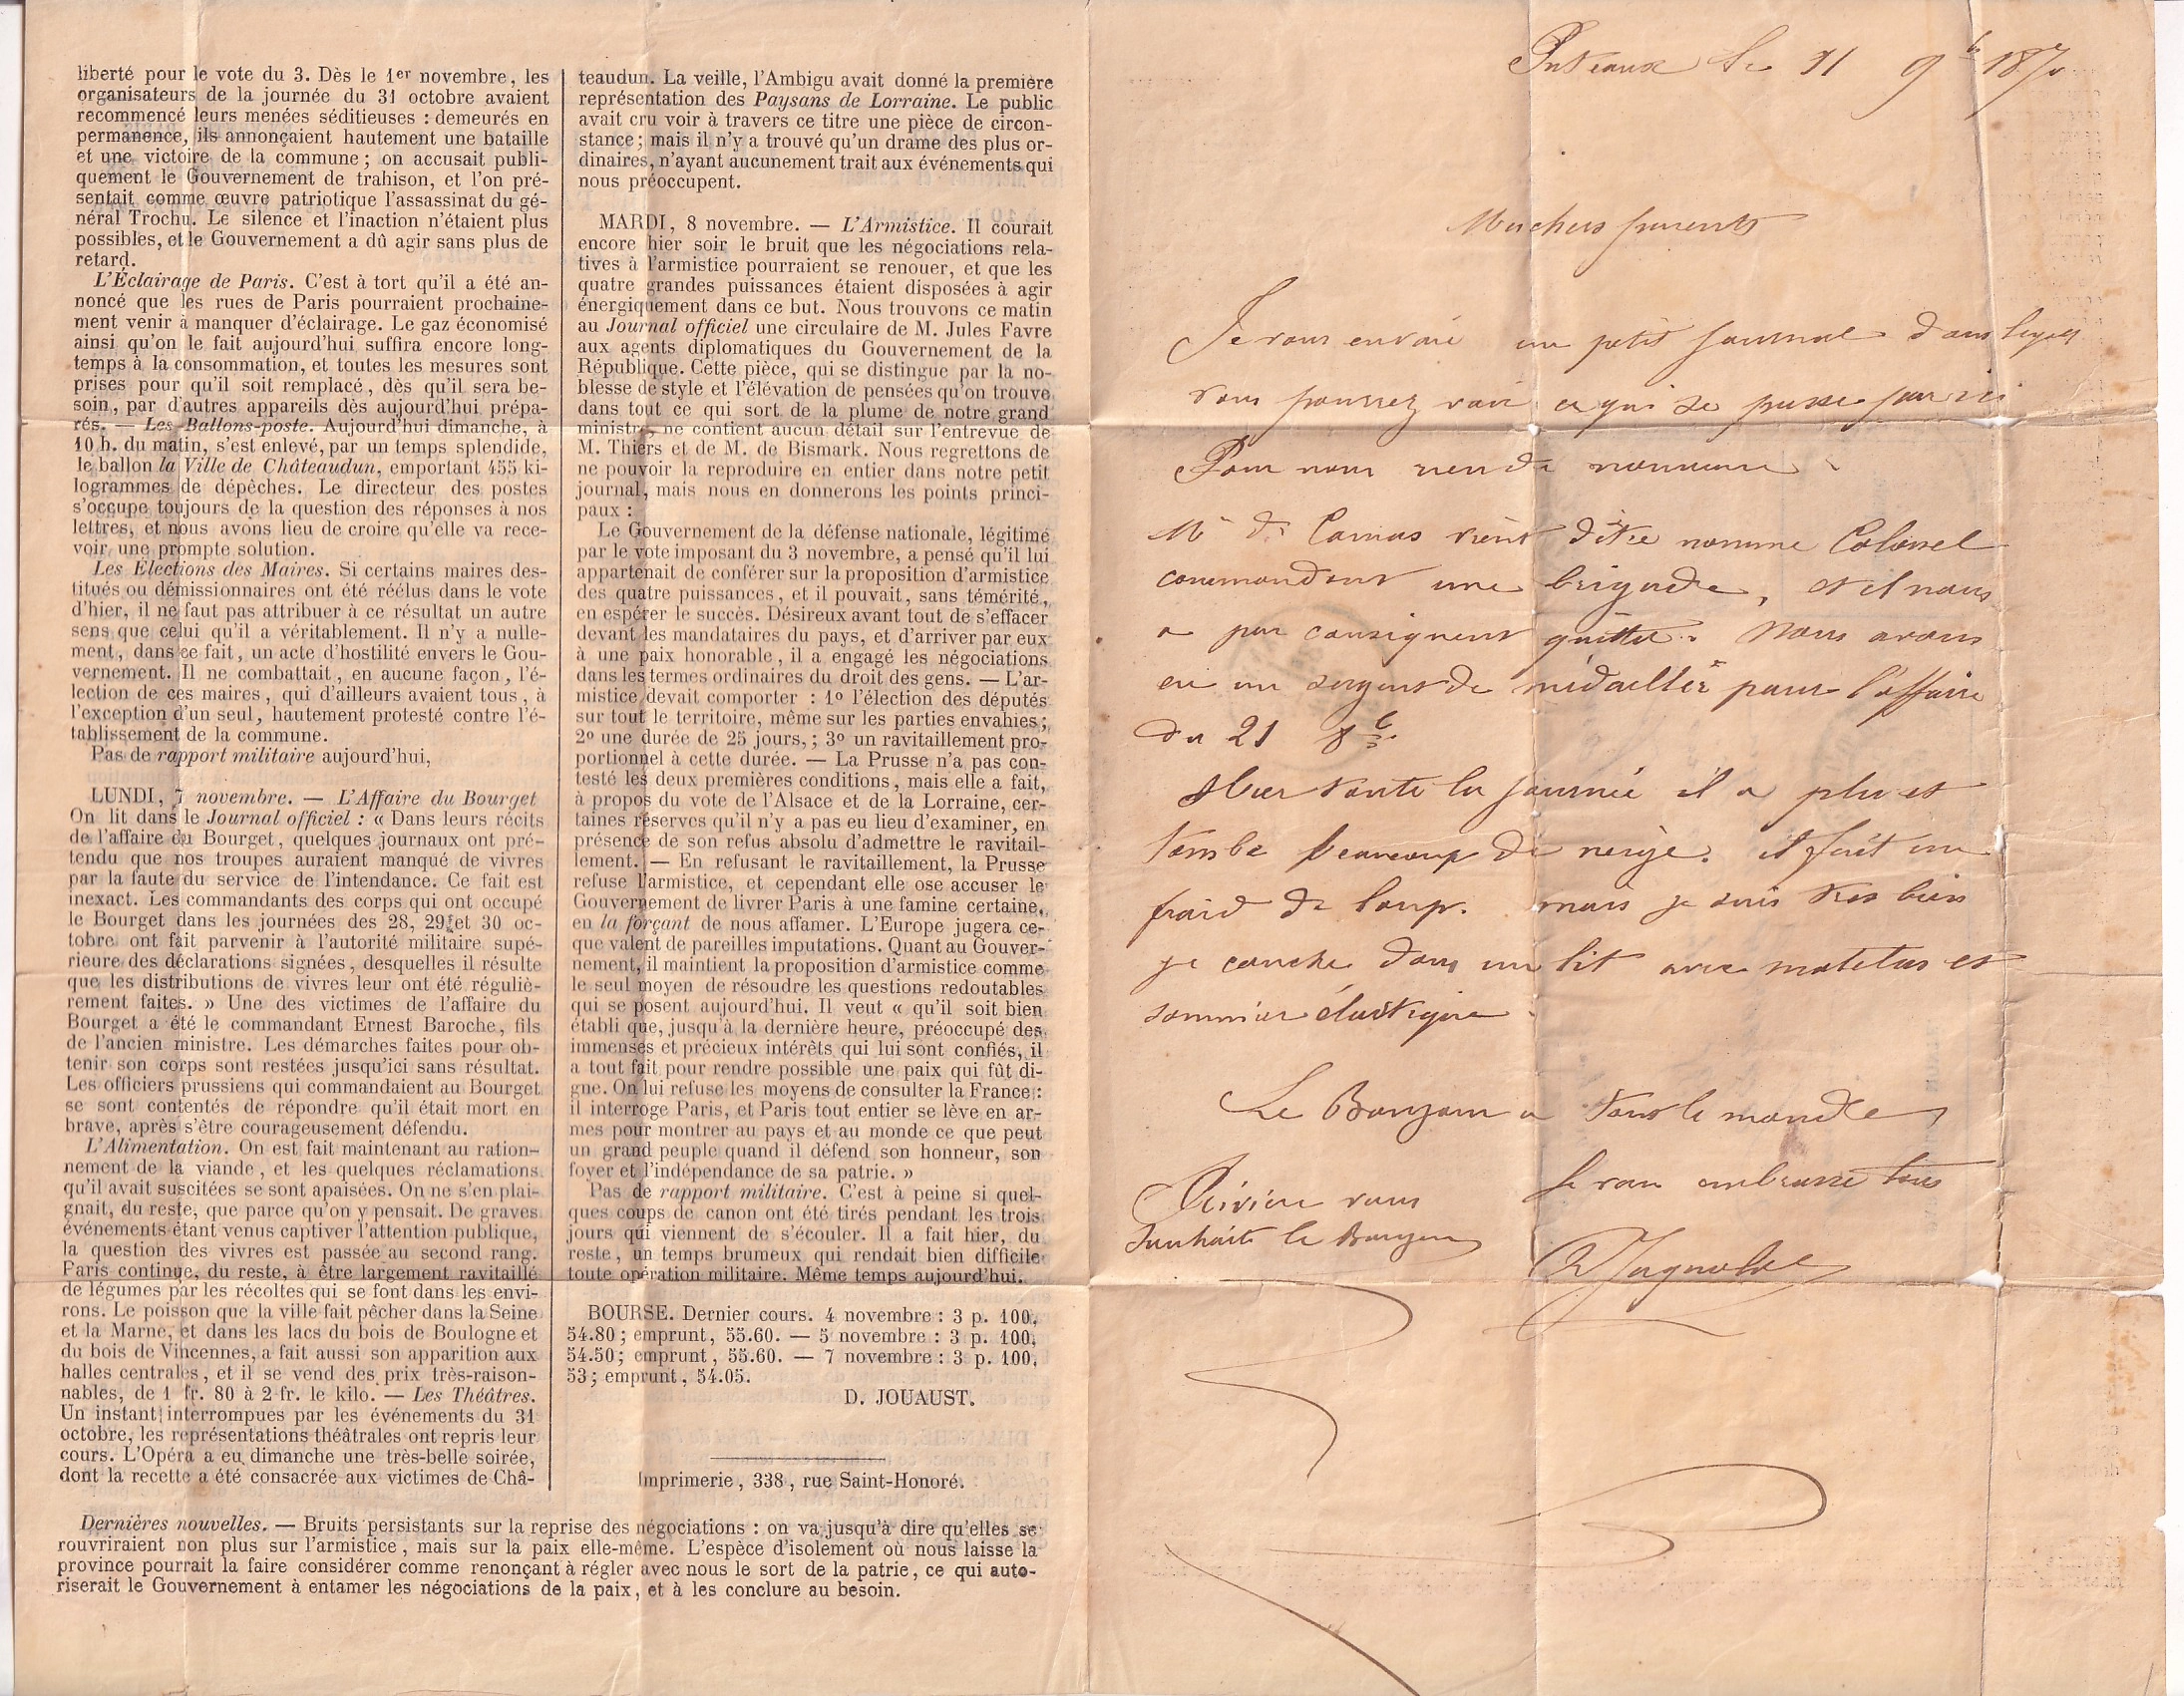 liberté pour le vote du 3. Dès le 1er novembre, les
organisateurs de la journée du 31 octobre avaient
recommencé leurs menées séditieuses : demeurés en
permanence, ils annonçaient hautement une bataille
et une victoire de la commune ; on accusait publi-
quement le Gouvernement de trahison, et l'on pré-
sentait comme œuvre patriotique l'assassinat du gé-
néral Trochu. Le silence et l'inaction n'étaient plus
possibles, et le Gouvernement a dû agir sans plus de
retard.
L'Éclairage de Paris. C'est à tort qu'il a été an-
noncé que les rues de Paris pourraient prochaine-
ment venir à manquer d'éclairage. Le gaz économisé
ainsi qu'on le fait aujourd'hui suffira encore long-
temps à la consommation, et toutes les mesures sont
prises pour qu'il soit remplacé, dès qu'il sera be-
soin, par d'autres appareils dès aujourd'hui prépa-
rés. — Les Ballons-poste. Aujourd'hui dimanche, à
10 h. du matin, s'est enlevé, par un temps splendide,
le ballon la Ville de Châteaudun, emportant 455 ki-
logrammes de dépêches. Le directeur des postes
s'occupe toujours de la question des réponses à nos
lettres, et nous avons lieu de croire qu'elle va rece-
voir une prompte solution.
Les Elections des Maires. Si certains maires des-
titués ou démissionnaires ont été réélus dans le vote
d'hier, il ne faut pas attribuer à ce résultat un autre
sens que celui qu'il a véritablement. Il n'y a nulle-
ment, dans ce fait, un acte d'hostilité envers le Gou-
vernement. Il ne combattait, en aucune façon, l'é-
lection de ces maires, qui d'ailleurs avaient tous, à
l'exception d'un seul, hautement protesté contre l'é-
tablissement de la commune.
Pas de rapport militaire aujourd'hui,
LUNDI, 7 novembre. — L'Affaire du Bourget
On lit dans le Journal officiel : « Dans leurs récits
de l'affaire du Bourget, quelques journaux ont pré-
tendu que nos troupes auraient manqué de vivres
par la faute du service de l'intendance. Ce fait est
inexact. Les commandants des corps qui ont occupé
le Bourget dans les journées des 28, 29 et 30 oc-
tobre ont fait parvenir à l'autorité militaire supé-
rieure des déclarations signées, desquelles il résulte
que les distributions de vivres leur ont été réguliè-
rement faites. » Une des victimes de l'affaire du
Bourget a été le commandant Ernest Baroche, fils
de l'ancien ministre. Les démarches faites pour ob-
tenir son corps sont restées jusqu'ici sans résultat.
Les officiers prussiens qui commandaient au Bourget
se sont contentés de répondre qu'il était mort en
brave, après s'être courageusement défendu.
L'Alimentation. On est fait maintenant au ration-
nement de la viande, et les quelques réclamations
qu'il avait suscitées se sont apaisées. On ne s'en plai-
gnait, du reste, que parce qu'on y pensait. De graves
événements étant venus captiver l'attention publique,
la question des vivres est passée au second rang.
Paris continue, du reste, à être largement ravitaillé
de légumes par les récoltes qui se font dans les envi-
rons. Le poisson que la ville fait pêcher dans la Seine
et la Marne, et dans les lacs du bois de Boulogne et
du bois de Vincennes, a fait aussi son apparition aux
halles centrales, et il se vend des prix très-raison-
nables, de 1 fr. 80 à 2 fr. le kilo. — Les Théâtres.
Un instant interrompues par les événements du 31
octobre, les représentations théâtrales ont repris leur
cours. L'Opéra a eu dimanche une très-belle soirée,
dont la recette a été consacrée aux victimes de Châ-
teaudun. La veille, l'Ambigu avait donné la première
représentation des Paysans de Lorraine. Le public
avait cru voir à travers ce titre une pièce de circon-
stance ; mais il n'y a trouvé qu'un drame des plus or-
dinaires, n'ayant aucunement trait aux événements qui
nous préoccupent.
MARDI, 8 novembre. — L'Armistice. Il courait
encore hier soir le bruit que les négociations rela-
tives à l'armistice pourraient se renouer, et que les
quatre grandes puissances étaient disposées à agir
énergiquement dans ce but. Nous trouvons ce matin
au Journal officiel une circulaire de M. Jules Favre
aux agents diplomatiques du Gouvernement de la
République. Cette pièce, qui se distingue par la no-
blesse de style et l'élévation de pensées qu'on trouve
dans tout ce qui sort de la plume de notre grand
ministre, ne contient aucun détail sur l'entrevue de
M. Thiers et de M. de Bismark. Nous regrettons de
ne pouvoir la reproduire en entier dans notre petit
journal, mais nous en donnerons les points princi-
paux :
Le Gouvernement de la défense nationale, légitimé
par le vote imposant du 3 novembre, a pensé qu'il lui
appartenait de conférer sur la proposition d'armistice
des quatre puissances, et il pouvait, sans témérité,
en espérer le succès. Désireux avant tout de s'effacer
devant les mandataires du pays, et d'arriver par eux
à une paix honorable, il a engagé les négociations
dans les termes ordinaires du droit des gens. — L'ar-
mistice devait comporter : 1º l'élection des députés
sur tout le territoire, même sur les parties envahies ;
2º une durée de 25 jours, ; 3º un ravitaillement pro-
portionnel à cette durée. — La Prusse n'a pas con-
testé les deux premières conditions, mais elle a fait,
à propos du vote de l'Alsace et de la Lorraine, cer-
taines réserves qu'il n'y a pas eu lieu d'examiner, en
présence de son refus absolu d'admettre le ravitail-
lement. — En refusant le ravitaillement, la Prusse
refuse l'armistice, et cependant elle ose accuser le
Gouvernement de livrer Paris à une famine certaine,
en la forçant de nous affamer. L'Europe jugera ce
que valent de pareilles imputations. Quant au Gouver-
nement, il maintient la proposition d'armistice comme
le seul moyen de résoudre les questions redoutables
qui se posent aujourd'hui. Il veut « qu'il soit bien
établi que, jusqu'à la dernière heure, préoccupé des
immenses et précieux intérêts qui lui sont confiés, il
a tout fait pour rendre possible une paix qui fût di-
gne. On lui refuse les moyens de consulter la France :
il interroge Paris, et Paris tout entier se lève en ar-
mes pour montrer au pays et au monde ce que peut
un grand peuple quand il défend son honneur, son
foyer et l'indépendance de sa patrie. »
Pas de rapport militaire. C'est à peine si quel-
ques coups de canon ont été tirés pendant les trois
jours qui viennent de s'écouler. Il a fait hier, du
reste, un temps brumeux qui rendait bien difficile
toute opération militaire. Même temps aujourd'hui.
BOURSE. Dernier cours. 4 novembre : 3 p. 100,
54.80 ; emprunt, 55.60. — 5 novembre : 3 p. 100,
54.50 ; emprunt, 55.60. — 7 novembre : 3 p. 100,
53 ; emprunt, 54.05.
D. JOUAUST.
Imprimerie, 338, rue Saint-Honoré.
Dernières nouvelles. — Bruits persistants sur la reprise des négociations : on va jusqu'à dire qu'elles se
rouvriraient non plus sur l'armistice, mais sur la paix elle-même. L'espèce d'isolement où nous laisse la
province pourrait la faire considérer comme renonçant à régler avec nous le sort de la patrie, ce qui auto-
riserait le Gouvernement à entamer les négociations de la paix, et à les conclure au besoin.
Puteaux le 11 9b 1870
Mes chers parents
Je vous envoie un petit journal dans lequel
vous pourrez voir ce qui se passe par ici
Pour nous rien de nouveau
Mr de Camas vient d'être nommé Colonel
commandant une brigade, et il nous
a par conséquent quitté. Nous avons
eu un sergent de médaillé pour l'affaire
du 21 8b
Hier toute la journée il a plu et
tombé beaucoup de neige. il fait un
froid de loup. mais je suis très bien
je couche dans un lit avec matelas et
sommier élastique
Le Bonjour a tout le monde
Je vous embrasse tous
Rivière vous
souhaite le Bonjour